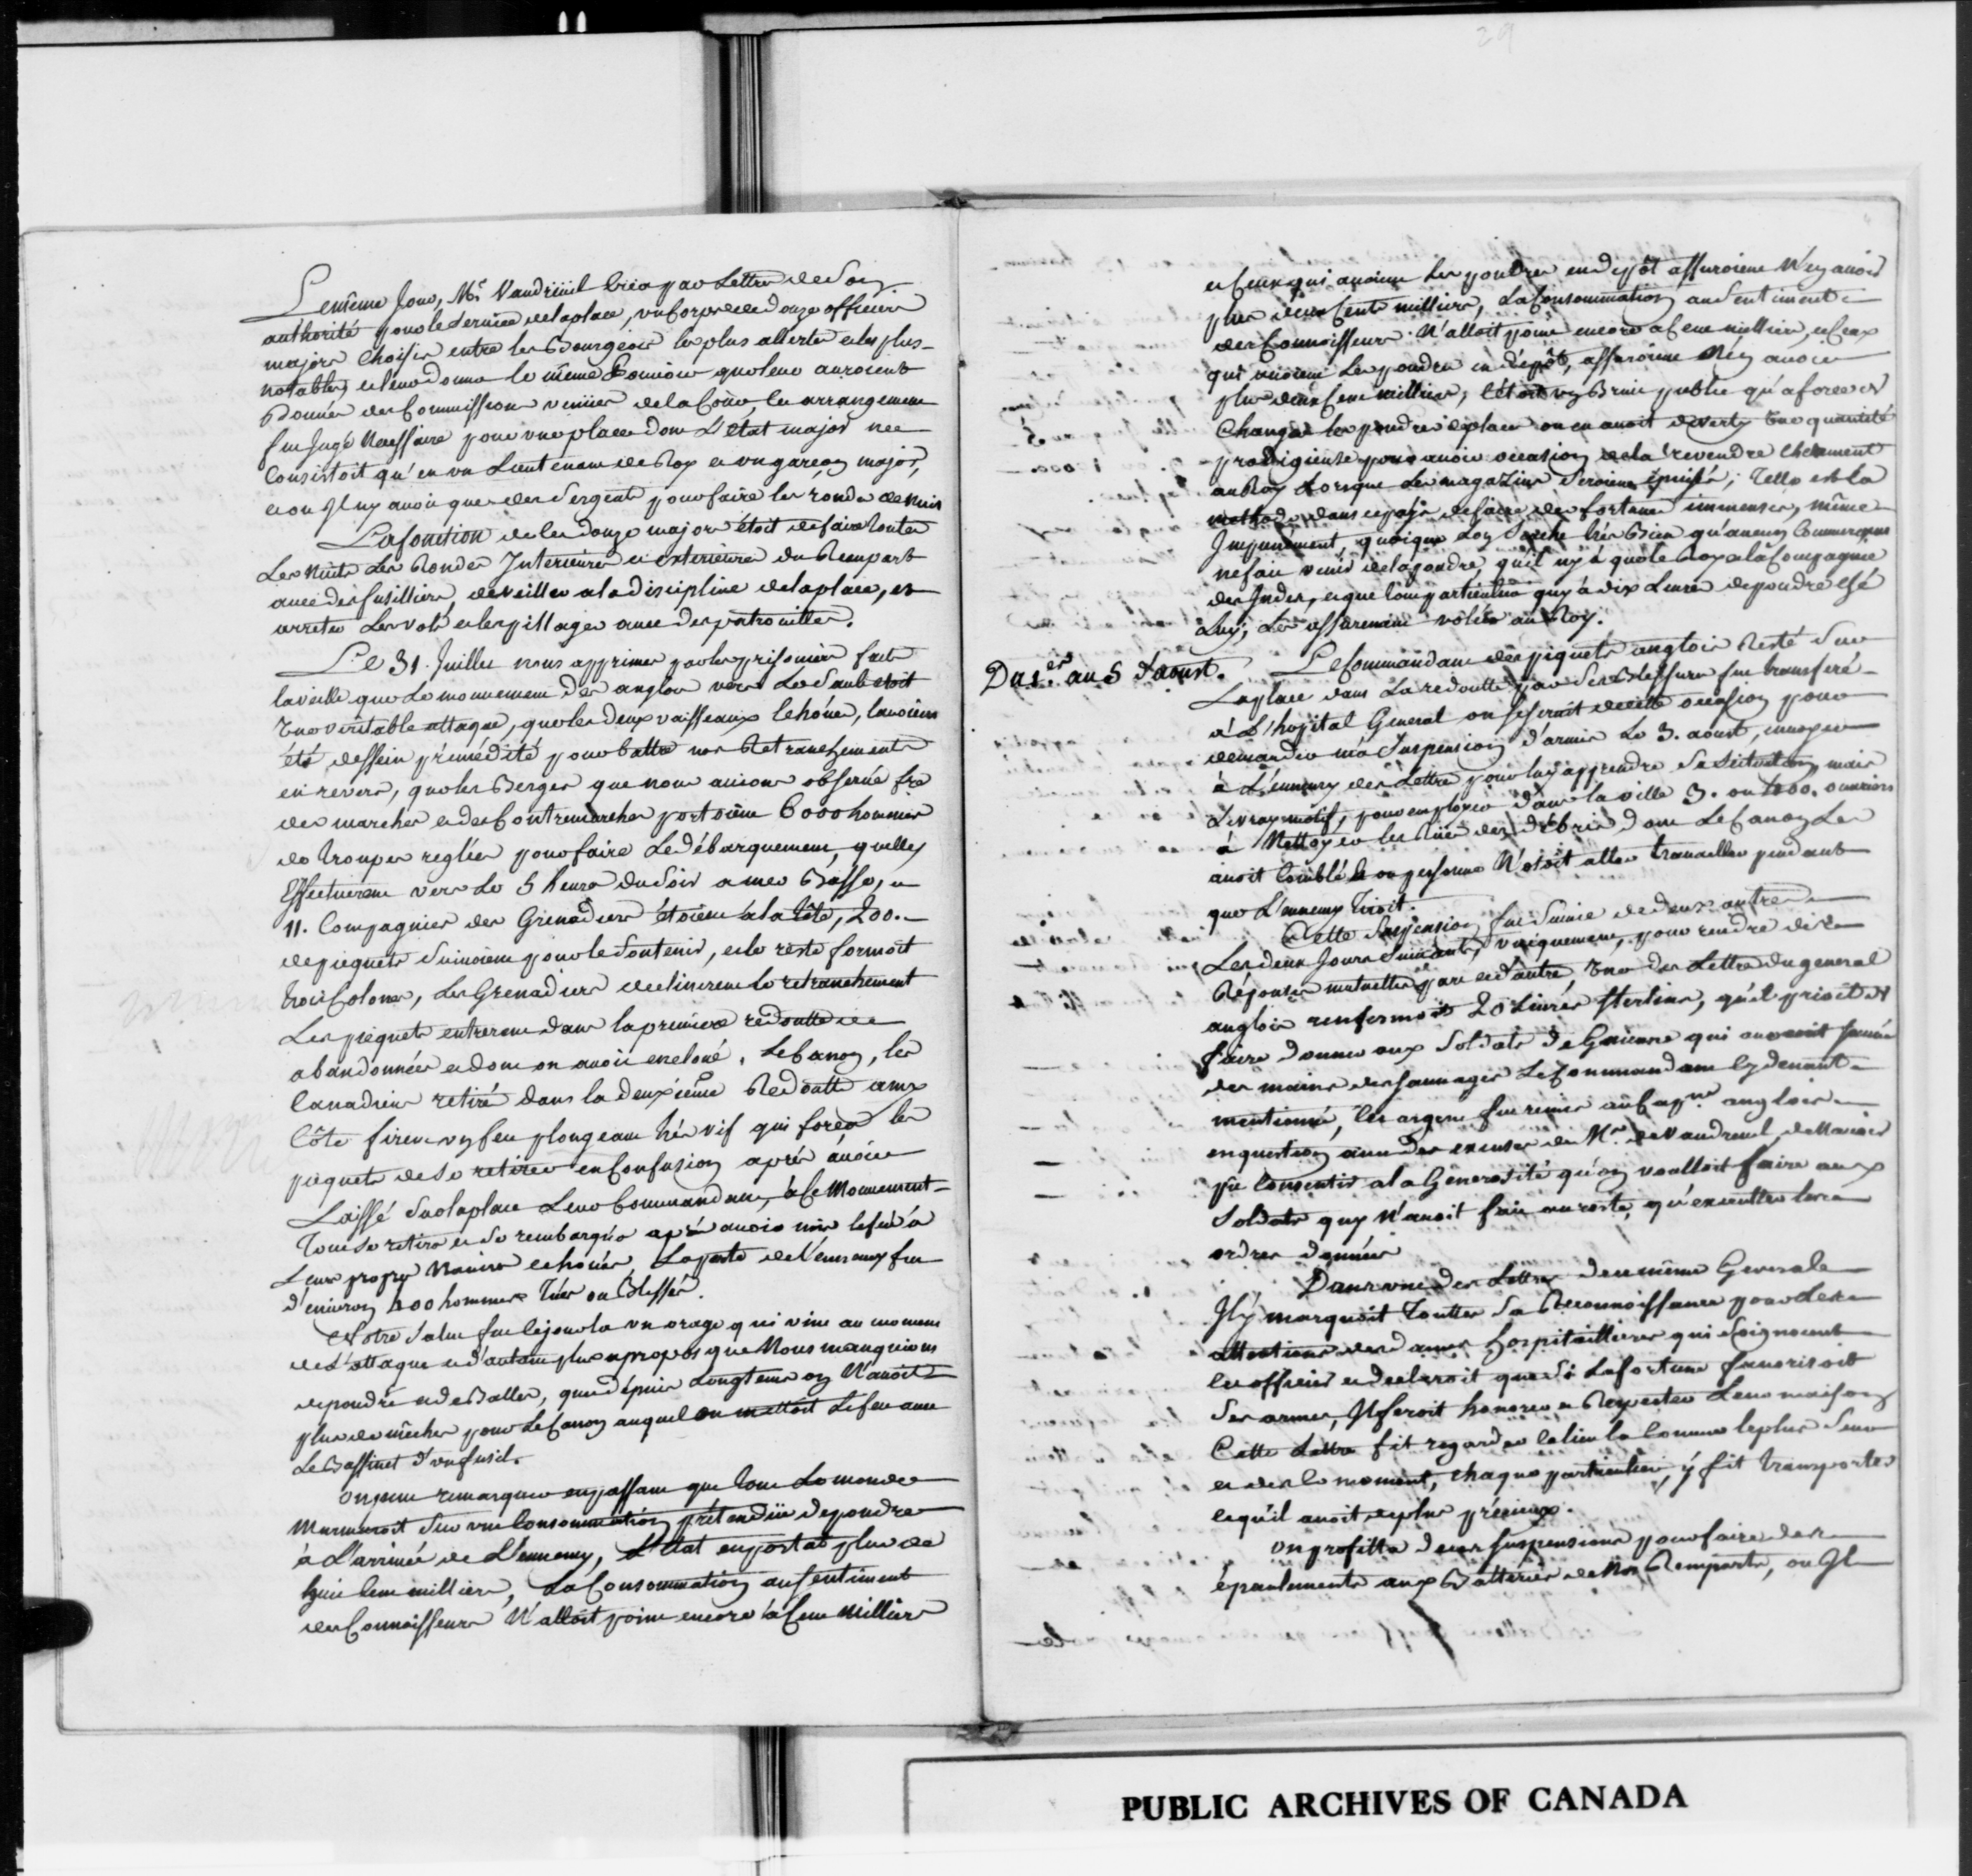 29
Le même Jour, Mr Vaudreüil créa par Lettre de Son
authorité pour le Service de la place, un Corps de douze officiers
majors Choisis entre les Bourgeois les plus allertes et les plus
notables, et leur donna le même Pouvoir que leur auroient
Donné des Commissions venües de la Cour, cet arrangement
fut Jugé Necessaire pour une place dont L'état major ne
Consistoit qu'en un Lieutenant de Roy et un garçon major,
et ou Il ny avoit que des Sergents pour faire les rondes de nuit
La fonction de ces douze majors étoit de faire toutes
Les Nuits Les Rondes Interieures et exterieures du Rempart
avec des fusilliers, de veiller a la discipline de la place, et
arreter Les vols et les pillages avec des patrouilles.
Le 31. Juillet nous apprimes par les prisoniers faits
la veille que Le mouvement des anglois vers Le Sault etoit
Une véritable attaque, que les deux vaisseaux Echoüés, l'avoient
été à dessein prémédité pour battre nos Retranchements
en revers, que les Berges que nous avions observé fre
des marches et des Contremarches portoient 6000 hommes
de troupes reglées pour faire Le débarquement, quelles
Effectuerent vers Les 5 heures du Soir a mer Basse,
11. Compagnies de Grenadiers étoient à la tête, 200.
de piquets Suivoient pour les Soutenir, et le reste formoit
trois Colones, Les Grenadiers le retranchement
Les piquets entrerent dans la premiere redoutte
abandonnée et dont on avoit encloué Le Canon, les
Canadiens retirés dans la deuxiéme Redoutte aux
Côte firent un feu plongeant très vif qui força les
piquets de Se retirer en Confusion après avoir
Laissé Sur la place Leur Commandant, à ce Mouvement
Tout Se retira et Se rembarqua après avoir mis le feu à
Leurs propre Navires echoüés, La perte de L'ennemy fut
d'environ 400 hommes Tués ou Blessés.
Notre Salut fut ce jour la un orage qui vint au moment
de L'attaque et d'autant plus apropos que Nous manquions
de poudre et de Balles, que depuis Longtems on N'avoit
plus de mêches pour Le Canon auquel on mettoit Le feu avec
Le Bassinet d'un fusil.
On peut remarquer en passant que tout Le monde
Murmuroit Sur une Consommation prétendüe de poudre
à L'arrivée de L'ennemy, L'Etat en portat plus de
huit Cent milliers, La Consommation au Sentiment
des Connoisseurs N'alloit point encore à Cent Milliers
et Ceux qui avoient Les poudres en dépôt assuroient N'en avoir
plus deux Cents milliers, La Consommation au Sentiment
des Connoisseurs N'alloit point encore a Cent milliers, et Ceux
qui avoient Les poudres en dépôt, assuroient N'en avoir
plus deux Cent milliers, C'étoit un Bruit public qu'a force de
Changer les poudres de place on en avoit diverty Une quantité
prodigieuse pour avoir occasion de la revendre Cherement
au Roy Lorsque Les magazins Seroient épuisés; Telle est la
methode dans ce païs de faire des fortunes immenses, même
Impunément quoique Lon Sache très Bien qu'aucun Commerçant
ne fait venir de la poudre, quil ny à que le Roy et la Compagnie
des Indes, et que tout particulier qui à dix Livres de poudre chés
Luy, Les assurement volées au Roy.
Du 1.er au 5 d'aoust.
Le Commandant des piquets anglois Resté Sur
La place dans La redoutte par Ses Blessures fut transferé
à L'hopital General on Se Servit de cette occasion pour
demander une Suspension d'armes Le 3. aoust, envoyer
à L'ennemy des Lettres pour luy apprendre Sa Situation, mais
Le vray motif, pour employer dans la ville 3. ou 400. ouvriers
à Nettoyer les Rües des débris dont Le Canon Les
avoit Comblé et ou personne N'osoit aller travailler pendant
que L'ennemy tiroit.
Cette Suspension fut Suivie de deux autres
Les deux Jours Suivants, uniquement, pour rendre des
Réponses mutuelles part et d'autre, Une des Lettres du general
anglois renfermoit 20 Livres Sterlins, qu'il prioit de
faire donner aux Soldats de Guienne qui avoient Sauvé
des mains des Sauvages Le Commandant cy devant
mentionné, Cet argent fut remis au Capne anglois
en question avec des excuses de Mr. de Vaudreuil, de N'avoir
pu Consentir a la Generosité qu'on voulloit faire aux
Soldats qui N'avoit fait au reste, qu'executter les
ordres donnés
Dans une des Lettres de ce même General
Il y marquoit Toutte Sa Reconnoissance pour les
attentions des dames hospitallieres qui Soignoient
les officiers et declaroit que Si La fortune favorisoit
Ses armes, Il feroit honorer et Respecter Leur maison
Cette Lettre fit regarder ce lieu la Comme le plus Seur
et des le moment, chaque particulier, y fit transporter
ce qu'il avoit de plus précieux.
On profitta de ces Suspensions pour faire des
épaulements aux Batteries de Nos Remparts, ou Il
PUBLIC ARCHIVES OF CANADA